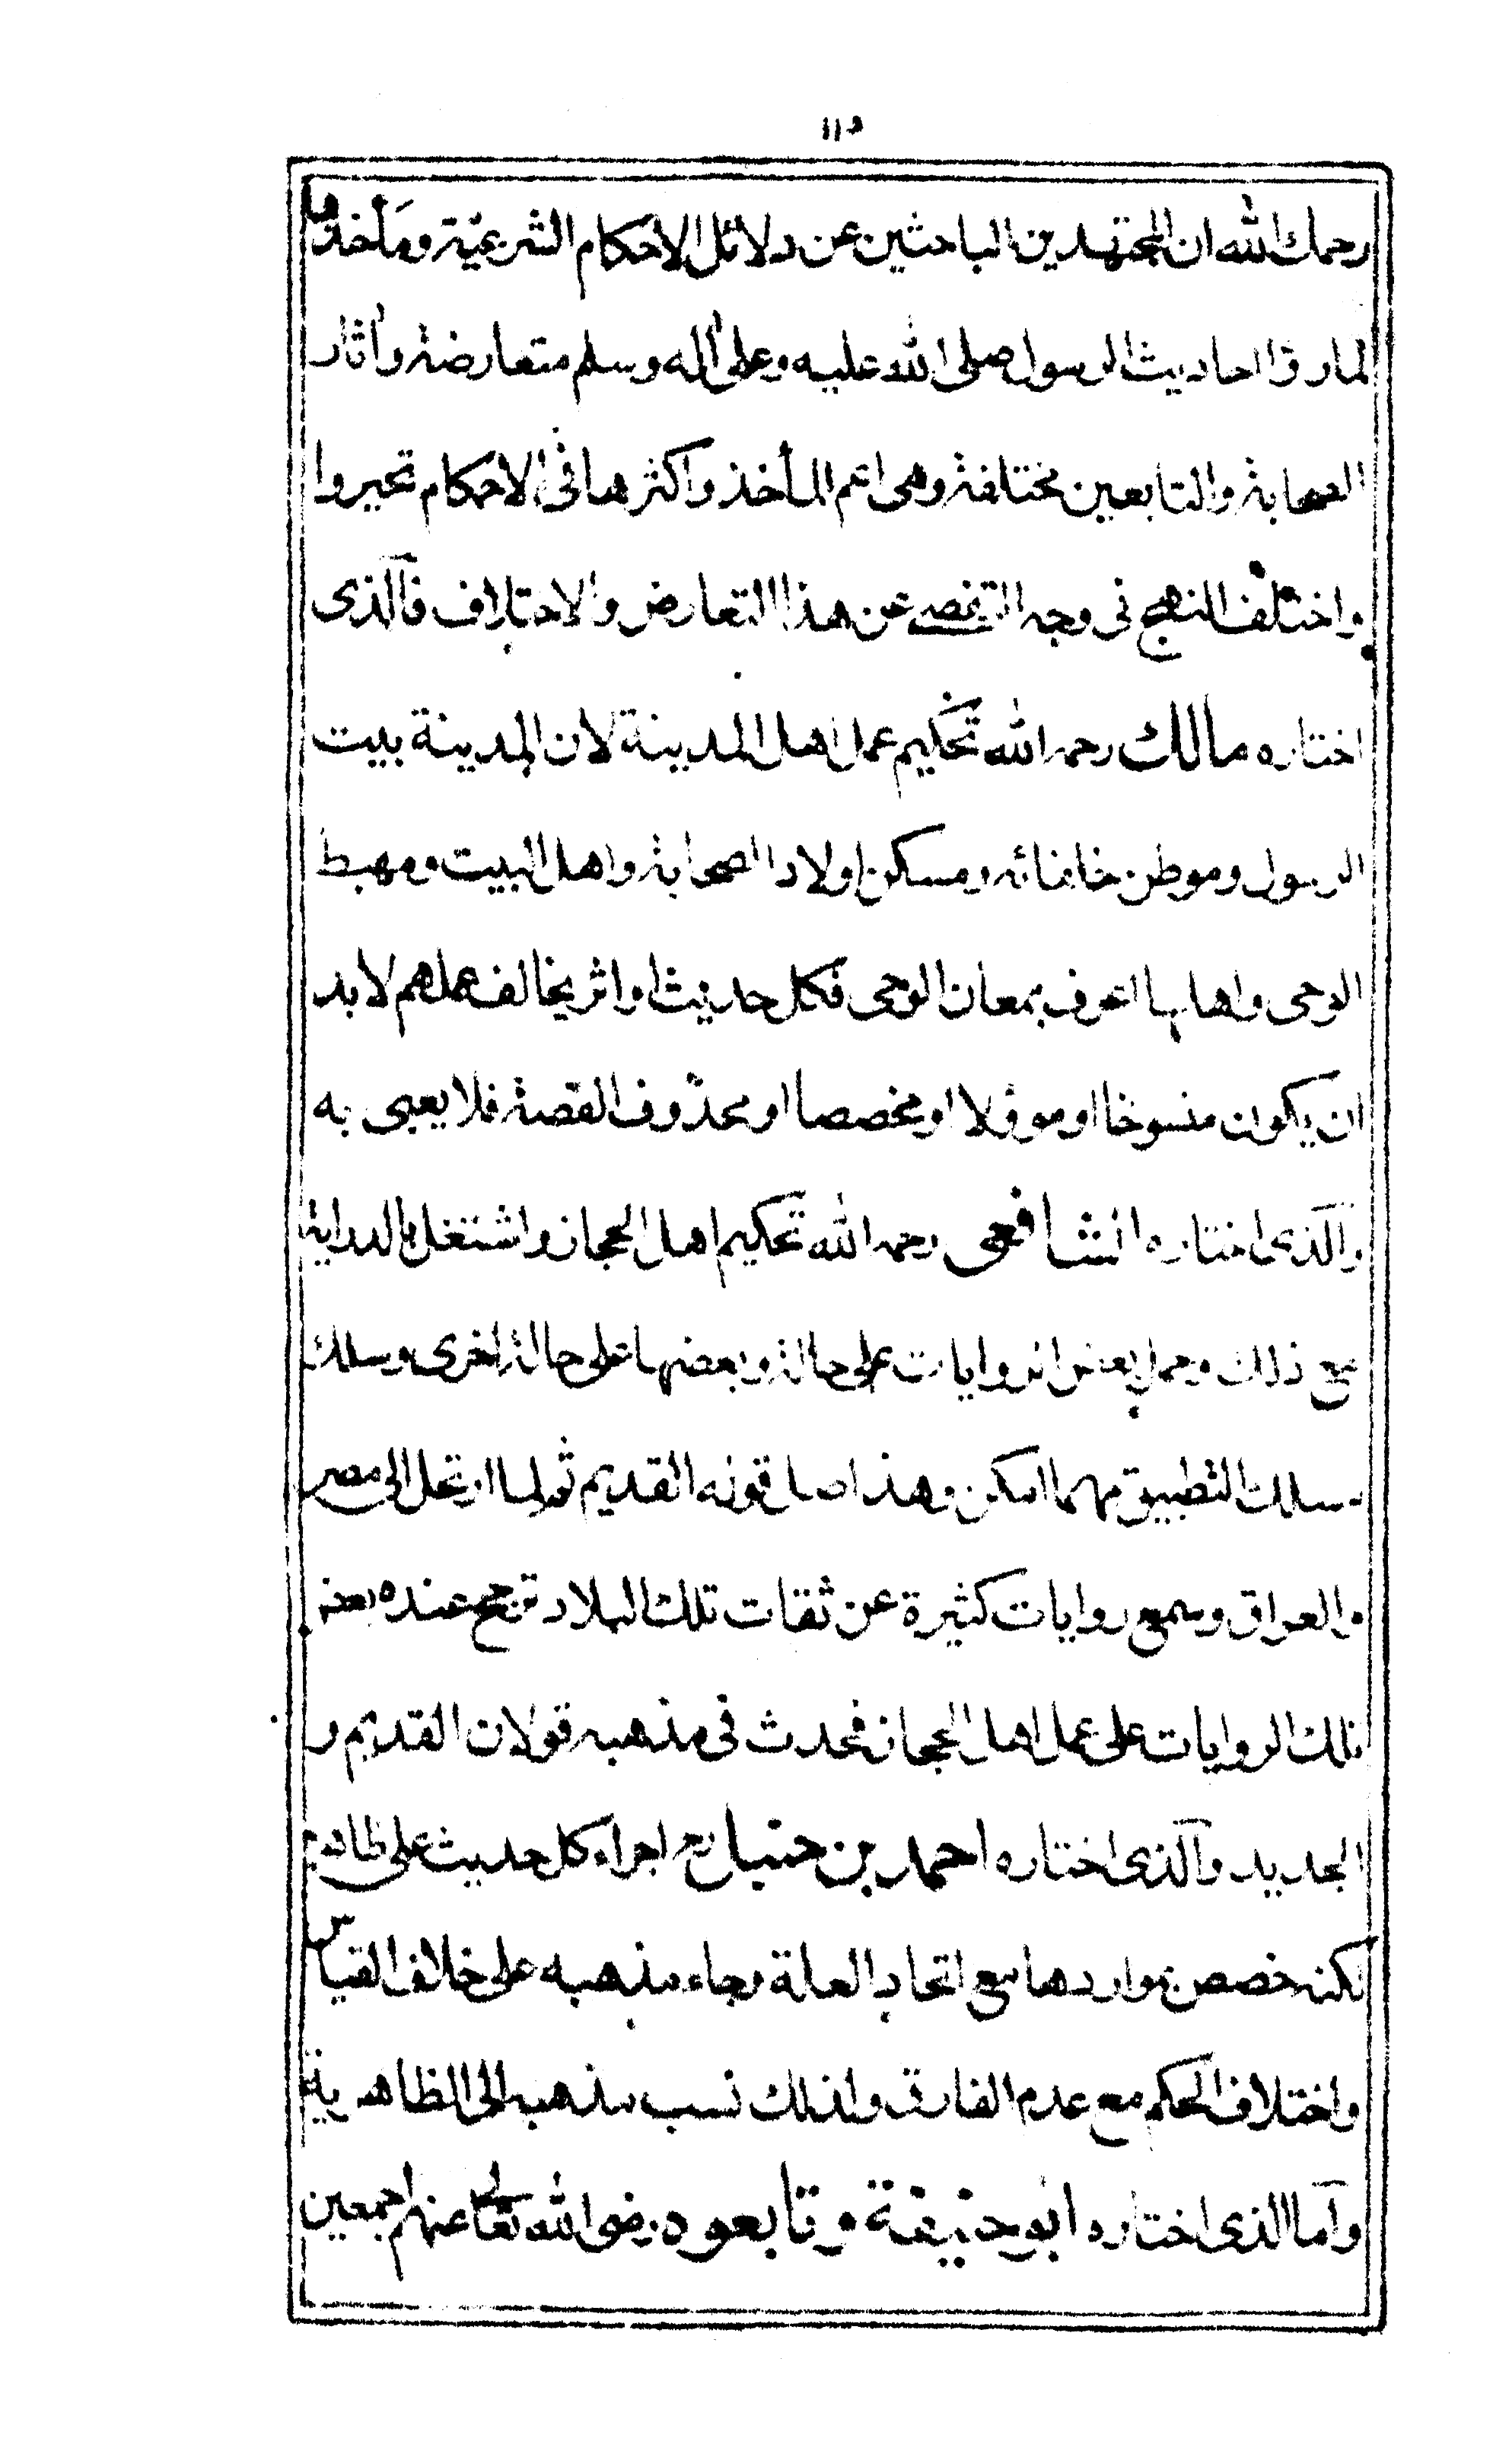 ١١٥
رحمك الله ان المجتهدين الباحثين عن دلائل الاحكام الشرعية ومأخذها
لما رؤا احاديث الرسول صلى الله عليه وعلى آله وسلم متعارضة وآثار
الصحابة والتابعين مختلفة وهى اعم المأخذ واكثرها فى الاحكام تحيروا
واختلف المنهج فى وجه التفصى عن هذا التعارض والاختلاف فالذى
اختاره مالك رحمه الله تحكيم عمل اهل المدينة لان المدينة بيت
الرسول وموطن خلفائه ومسكن اولاد الصحابة واهل البيت ومهبط
الوحى واهلها اعرف بمعان الوحى فكل حديث او اثر يخالف عملهم لا بد
ان يكون منسوخا او موؤلا او مخصصا او محذوف القصة فلا يعبى به
والذى اختاره الشافعى رحمه الله تحكيم اهل الحجاز واشتغل بالدراية
مع ذلك وحمل بعض الروايات على حالة وبعضها على حالة اخرى وسلك
مسلك التطبيق مهما امكن وهذا اصل قوله القديم ثم لما ارتحل الى مصر
والعراق وسمع روايات كثيرة عن ثقات تلك البلاد ترجح عنده بعض
تلك الروايات على عمل اهل الحجاز فحدث فى مذهبه قولان القديم و
الجديد والذى اختاره احمد بن حنبل رح اجراء كل حديث على ظاهره
لكنه خصص بمواردها مع اتحاد العلة وجاء مذهبه على خلاف القياس
واختلاف الحكم مع عدم الفارق ولذلك نسب مذهبه الى الظاهرية
واما الذى اختاره ابو حنيفة وتابعوه رضى الله تعالى عنهم اجمعين